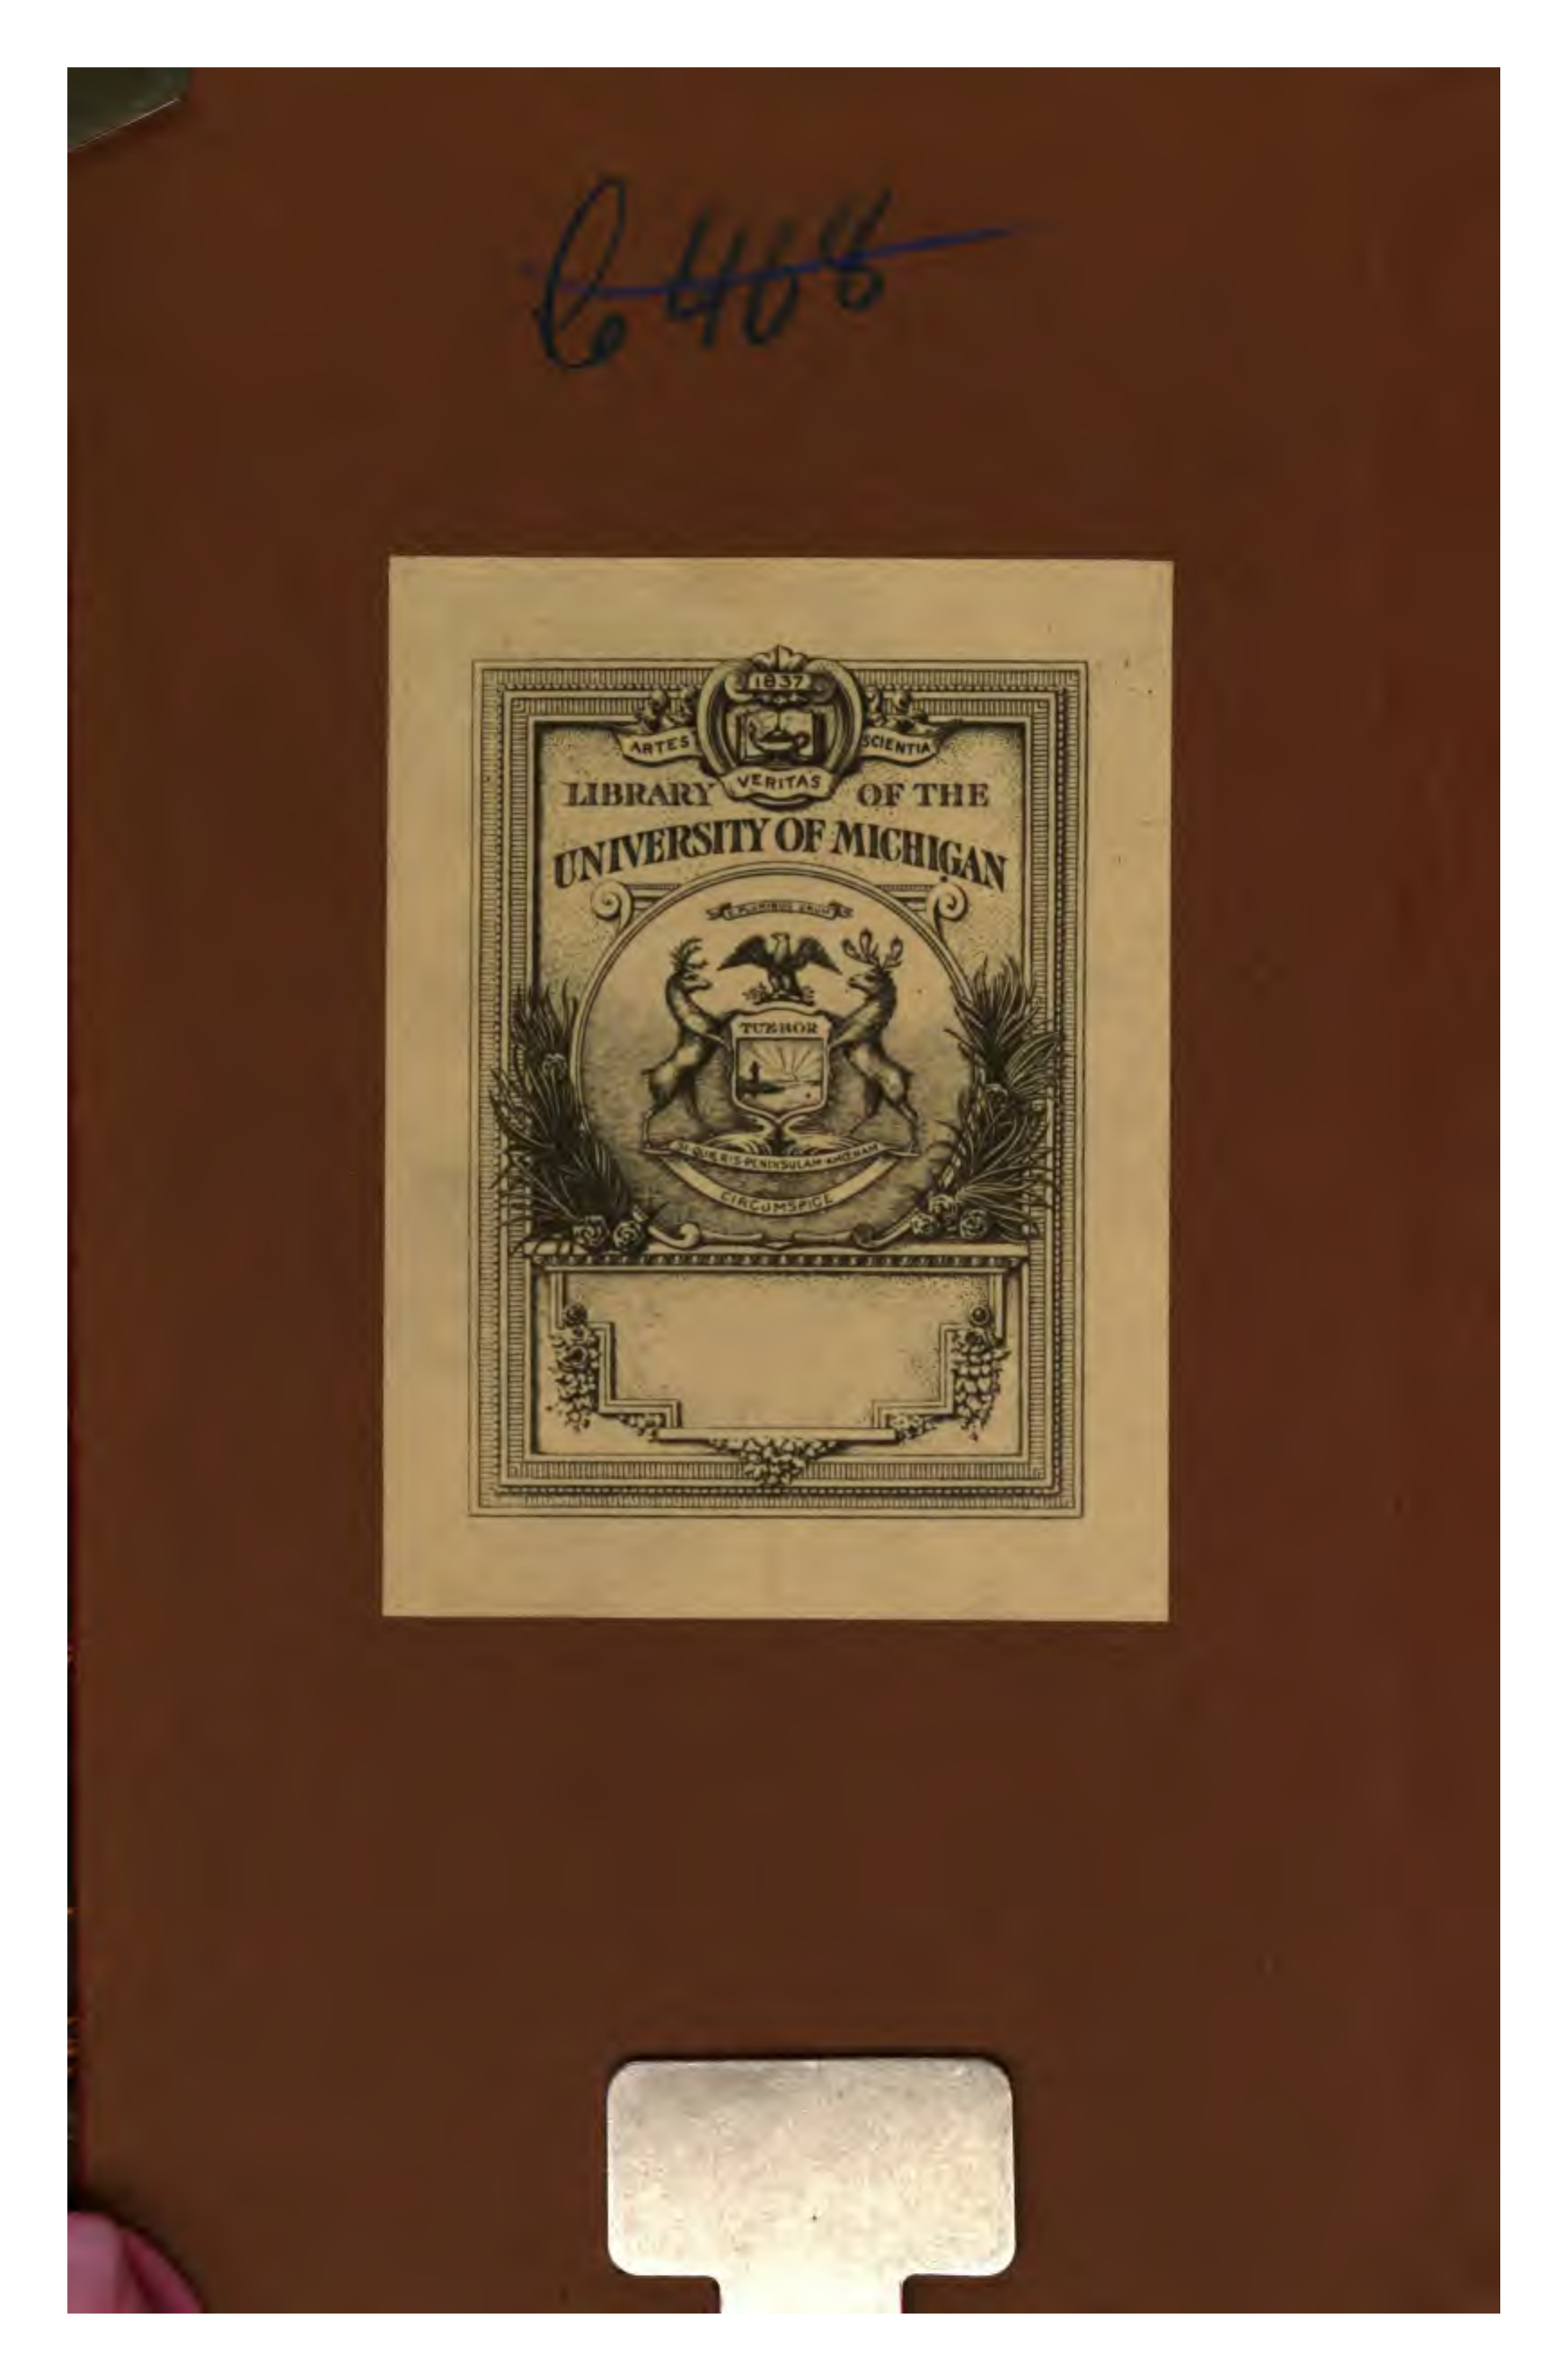 1837
ARTES SCIENTIA
VERITAS
LIBRARY OF THE
UNIVERSITY OF MICHIGAN
E PLURIBUS UNUM
TUEBOR
SI QUÆRIS PENINSULAM AMŒNAM
CIRCUMSPICE